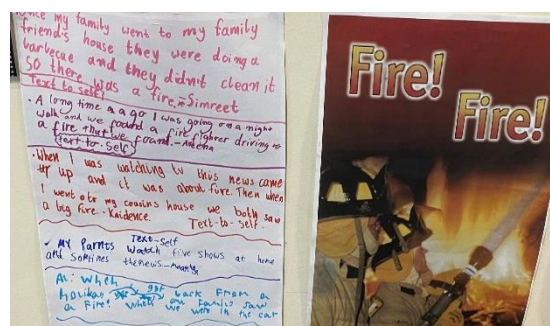 once my family went to my family
friend's house they were doing a
barbecue and they didn't clean it
SO there was a fire. Simreet
Text to self
• A long time a ago I was going on a night
walk and we found a fire fighter driving to
a fire that we found. - Amena
text-to-self
• When I was watching tv this news came
up and it was about fire. Then when
I went to my cousins house we both saw
a big fire - Kaidence. Text-to-self.
Text-Self
MY Parnts watch five shows at home
and Somtines thenews.
A: When got back From a
a Fire! when we were in the car
Fire!
Fire!